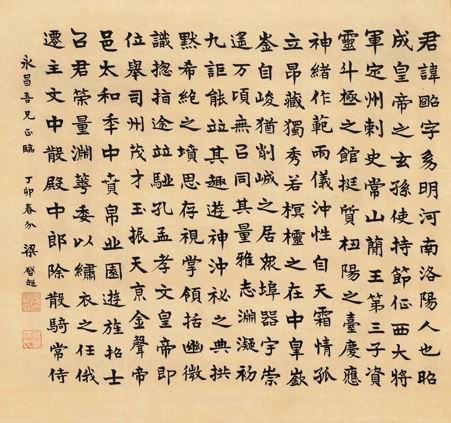 君諱昭字㓜明河南洛陽人也昭
成皇帝之玄孫使持節征西大將
軍定州刺史常山簡王第三子資
靈斗極之館挺質杻陽之臺慶應
神緒作範兩儀沖性自天霜情孤
立昂藏獨秀若榠櫺之在中皐嶽
崟自峻猶削峸之居衆埠器宇崇
遥万頃無㠯同其量雅志淵凝初
九詎能竝其趣遊神沖祕之典拱
默希絶之墳思存視掌領括幽微
識揔指途竝驅孔孟孝文皇帝即
位舉司州茂才玉振天京金聲帝
邑太和季中賁帛丘園遊旌招士
召君榮量淵華委以繡衣之任俄
遷主文中散殿中郎除散騎常侍
永昌吾兄正臨 丁卯春分 梁啓超